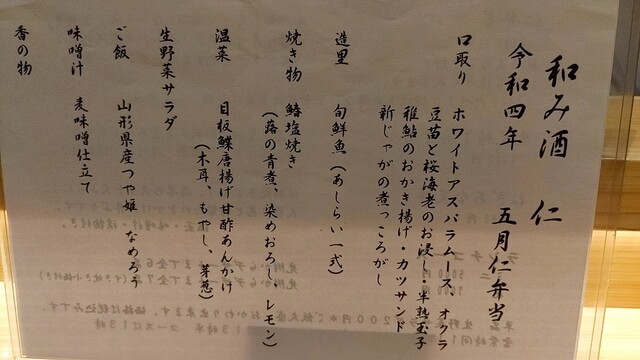 和み酒 仁
令和四年 五月仁弁当
口取り ホワイトアスパラムース オクラ
豆苗と桜海老のお浸し・半熟玉子
稚鮎のおかき揚げ・カツサンド
新じゃがの煮っころがし
造里 旬鮮魚(あしらい一式)
焼き物 鰆塩焼き
(蕗の青煮、染めおろし、レモン)
温菜 目板鰈唐揚げ甘酢あんかけ
(木耳、もやし、芽葱)
生野菜サラダ
ご飯 山形県産つや姫 なめろう
味噌汁 麦味噌仕立て
香の物